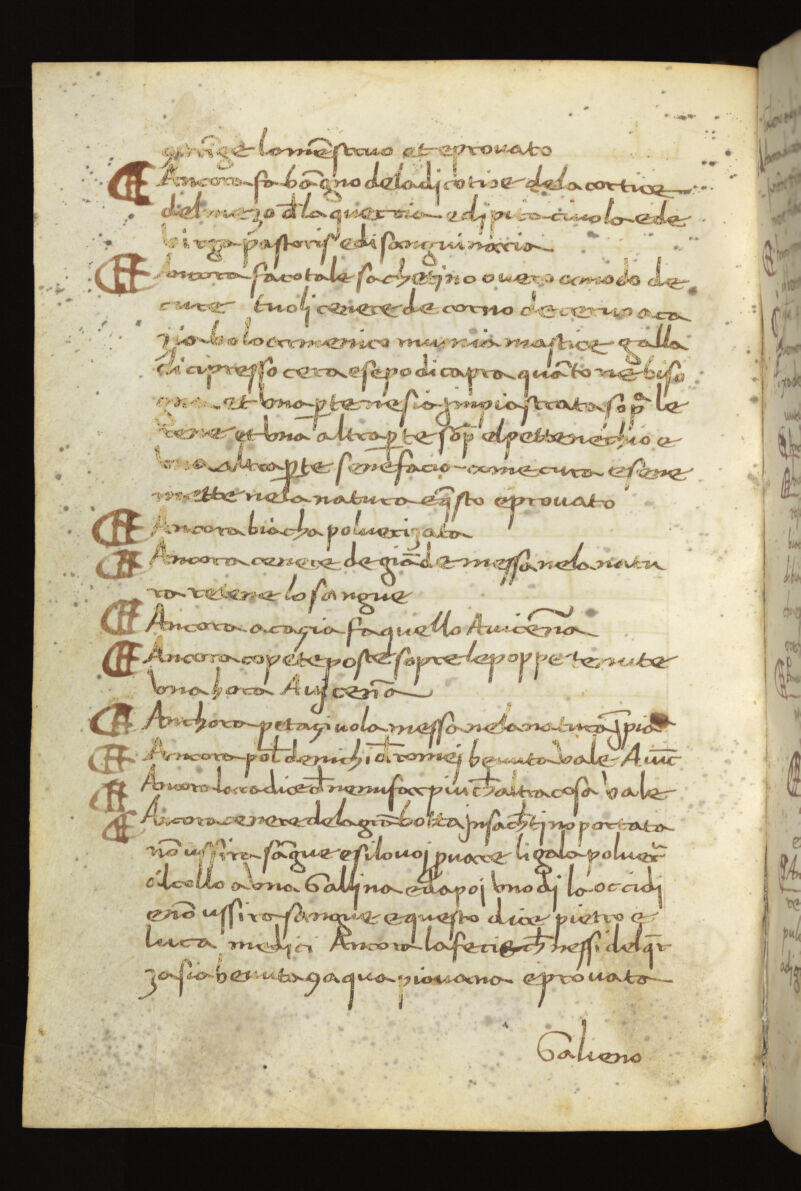 lo mēstruo et e prouato
Ancora fa bāgno de la di cotioe de la cortice
del mezo dl la quercia e di petacciuola e de
birga pastoris e di sanguinaria
Ancora fa cotale sachetino ouero a modo de
cure tuoli cenere de corno de ceruo aca
zia bolo armenico mumia mastice galla
di cipresso cera e sepo di capra quāto ne biso
gna et una ꝑte ne sia impiastrata sopra le
rene et una altra ꝑte sop el pettenechio e
una altra ꝑte se ne facio come cura e sene
mette ne la natura e qsto e prouato
Ancora biacha poluerizata
Ancora cenere de giāde messa nela natu
ra retene lo sangue
Ancora acazia fa quello Auicēna
Ancora copete poste sopre le poppe tenute
una hora Auicēna
Anchora petaciuola messa nela natura
Ancora benuta uale Auic
Ancora dice altra cosa uale
Ancora cenere de la grā botta in sachtino portata
nō ussira sāgue e si lo uoi ꝓuare ligala poluere
al collo a una Gallina e dapoi uno di la occidi
e nō ussira sangue e questo dice pietro e
luca medici Ancora la fecie
za sia benuta 9 aqua piouana e prouato
Galieno